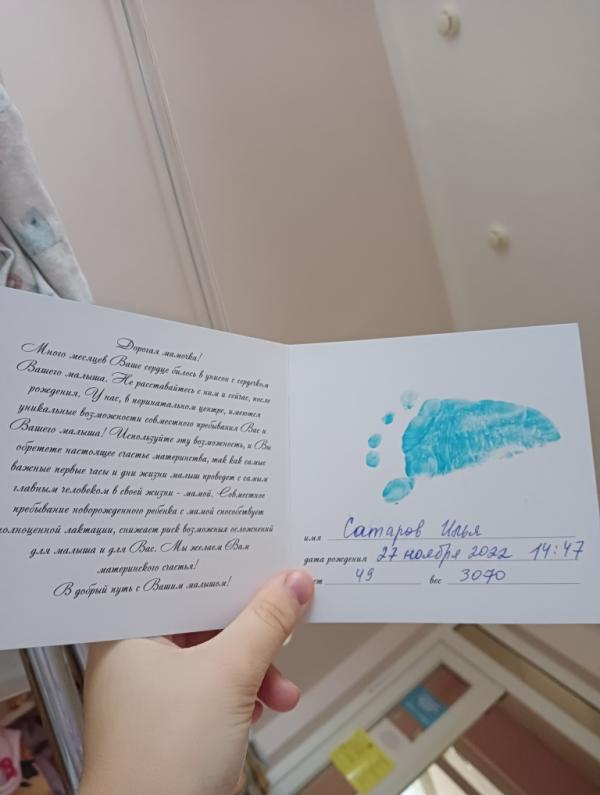 Дорогая мамочка!
Много месяцев Ваше сердце билось в унисон с сердечком
Вашего малыша. Не расставайтесь с ним и сейчас, после
рождения. У нас, в перинатальном центре, имеются
уникальные возможности совместного пребывания Вас и
Вашего малыша! Используйте эту возможность, и Вы
обретете настоящее счастье материнства, так как самые
важные первые часы и дни жизни малыш проведет с самым
главным человеком в своей жизни - мамой. Совместное
пребывание новорожденного ребенка с мамой способствует
олноценной лактации, снижает риск возможных осложнений
для малыша и для Вас. Мы желаем Вам
материнского счастья!
В добрый путь с Вашим малышом!
имя Сатаров Илья
дата рождения 27 ноября 2022 14:47
ст 49 вес 3070